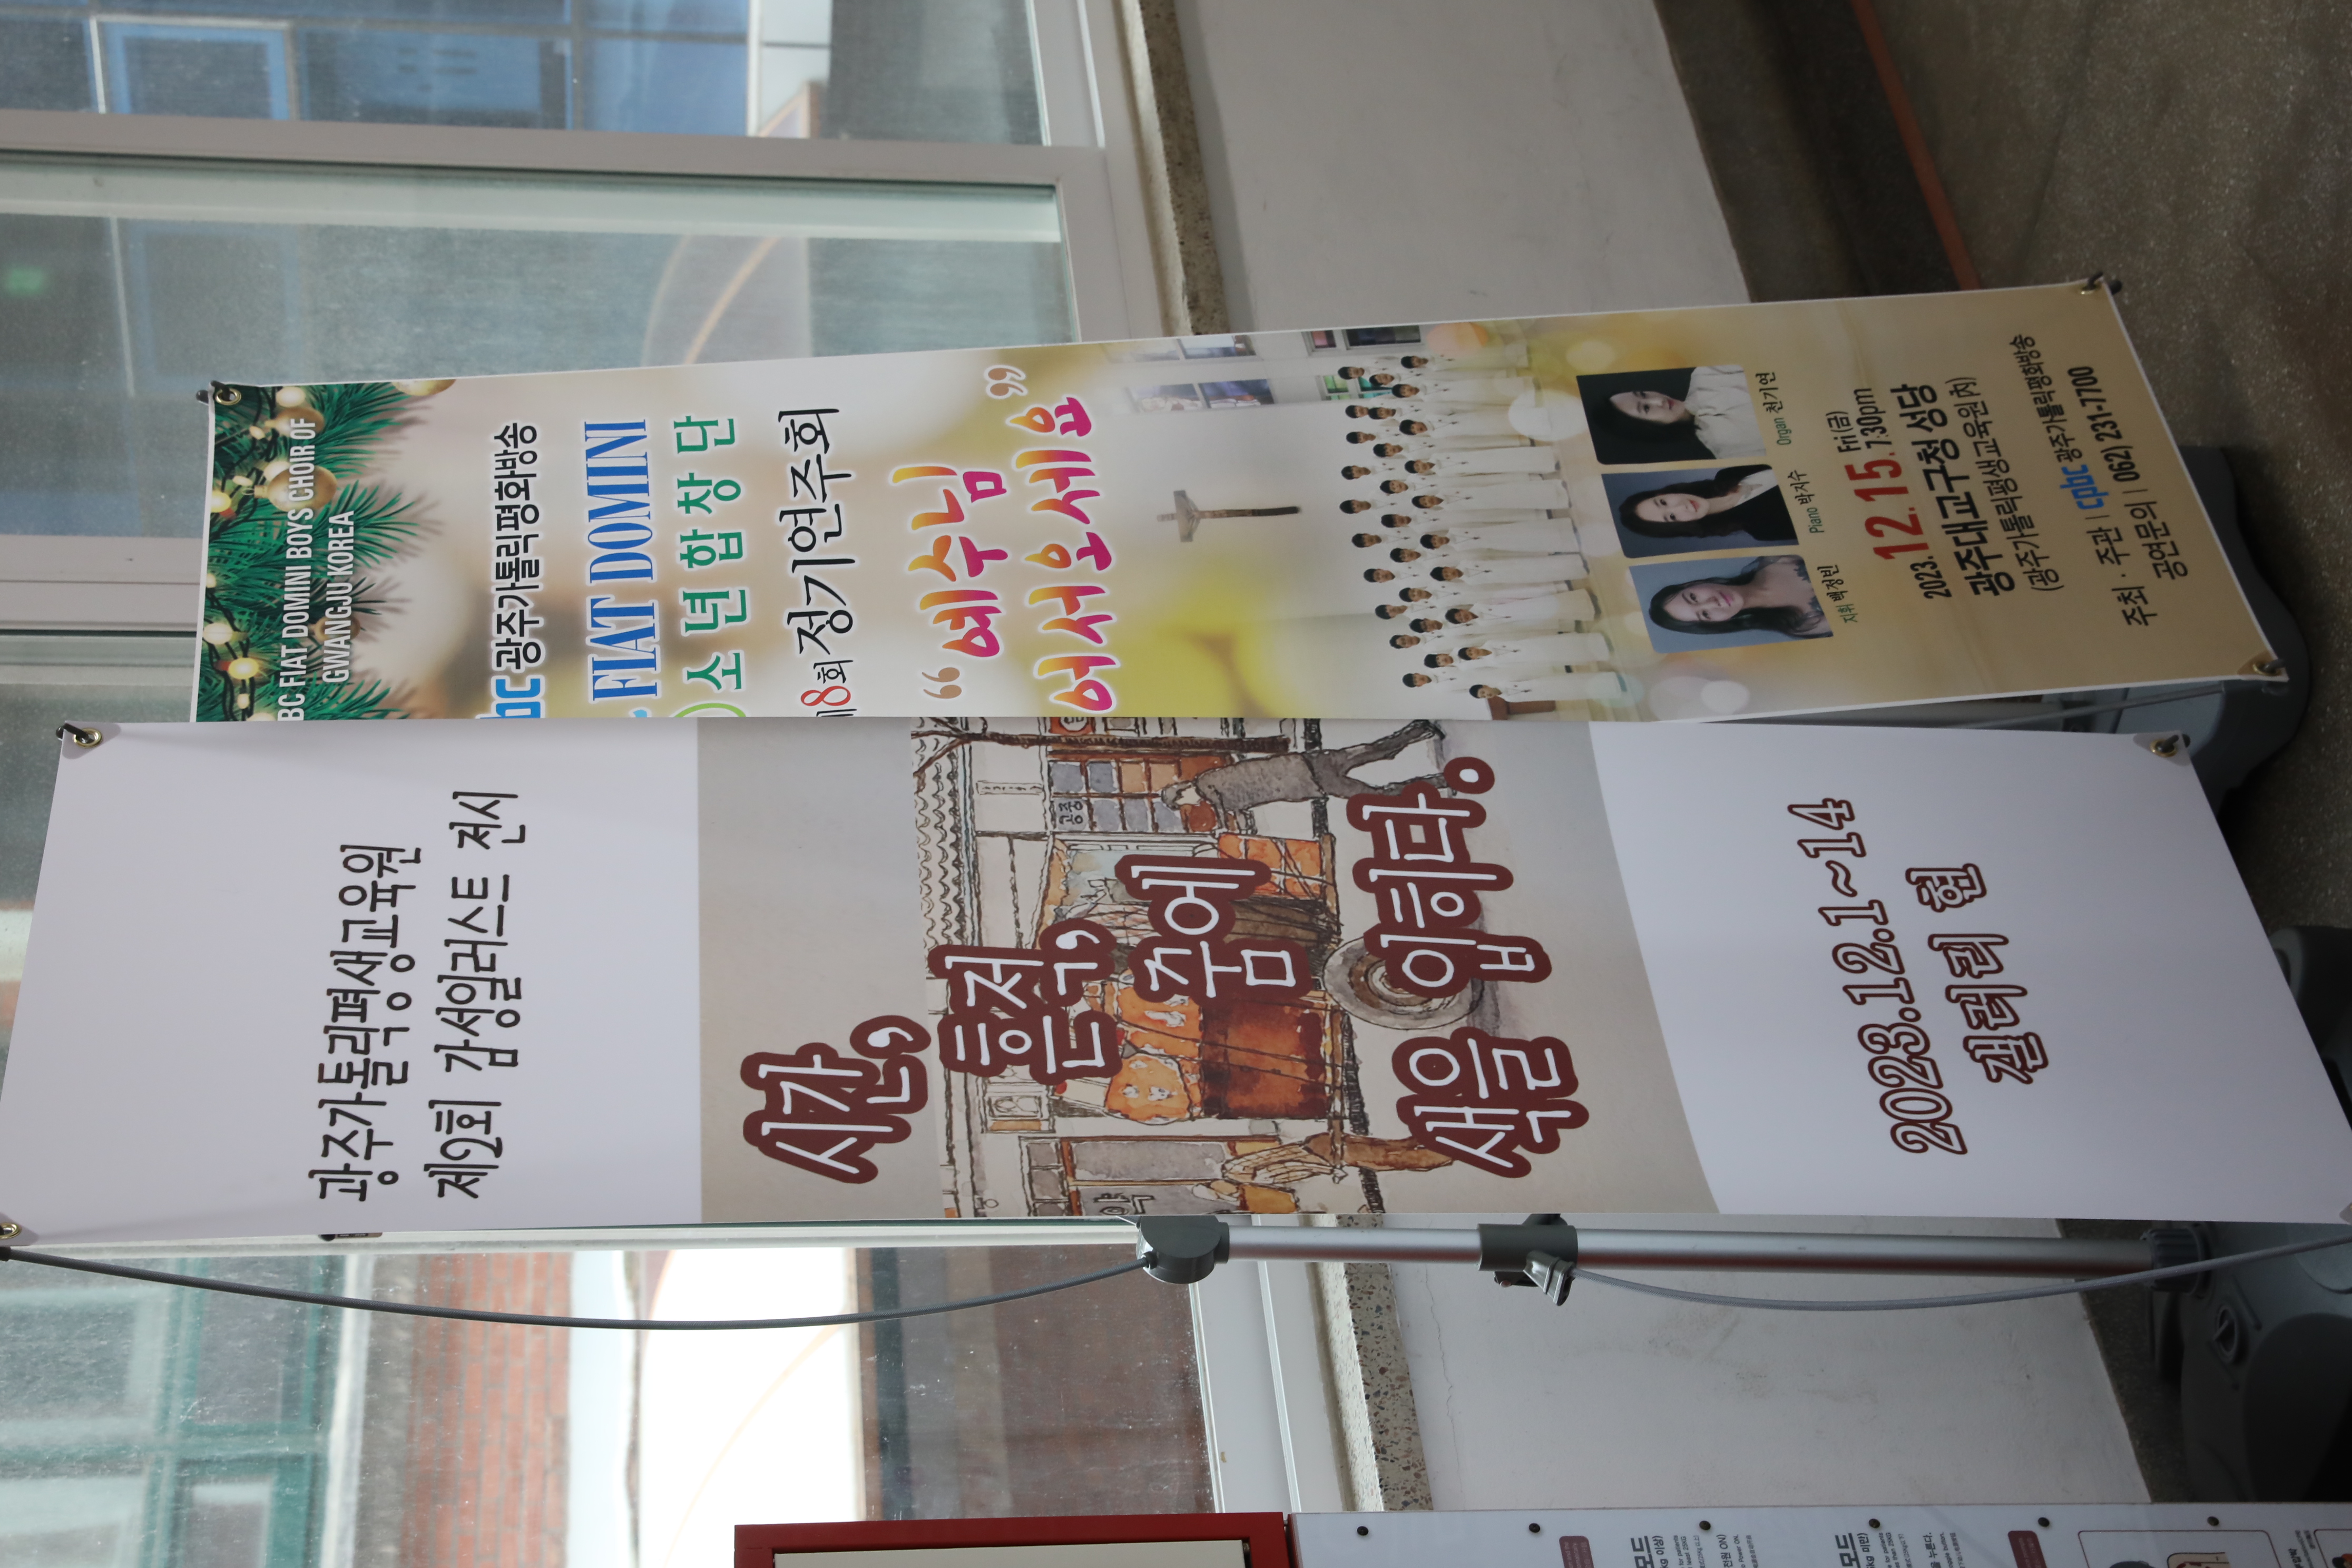 광주가톨릭평생교육원
제2회 감성일러스트 전시
시간,
흔적,
춤에
색을 입히다.
2023.12.1~14
갤러리 현
BC FIAT DOMINI BOYS CHOIR OF
GWANGJU KOREA
bc 광주가톨릭평화방송
FIAT DOMINI
소년합창단
제8회 정기연주회
“예수님
어서오세요”
지휘 백정빈
Piano 박지수
Organ 천기연
2023. 12. 15. Fri(금) 7:30pm
광주대교구청 성당
(광주가톨릭평생교육원 內)
주최 · 주관 | cpbc 광주가톨릭평화방송
공연문의 | 062) 231-7700
모드
모드